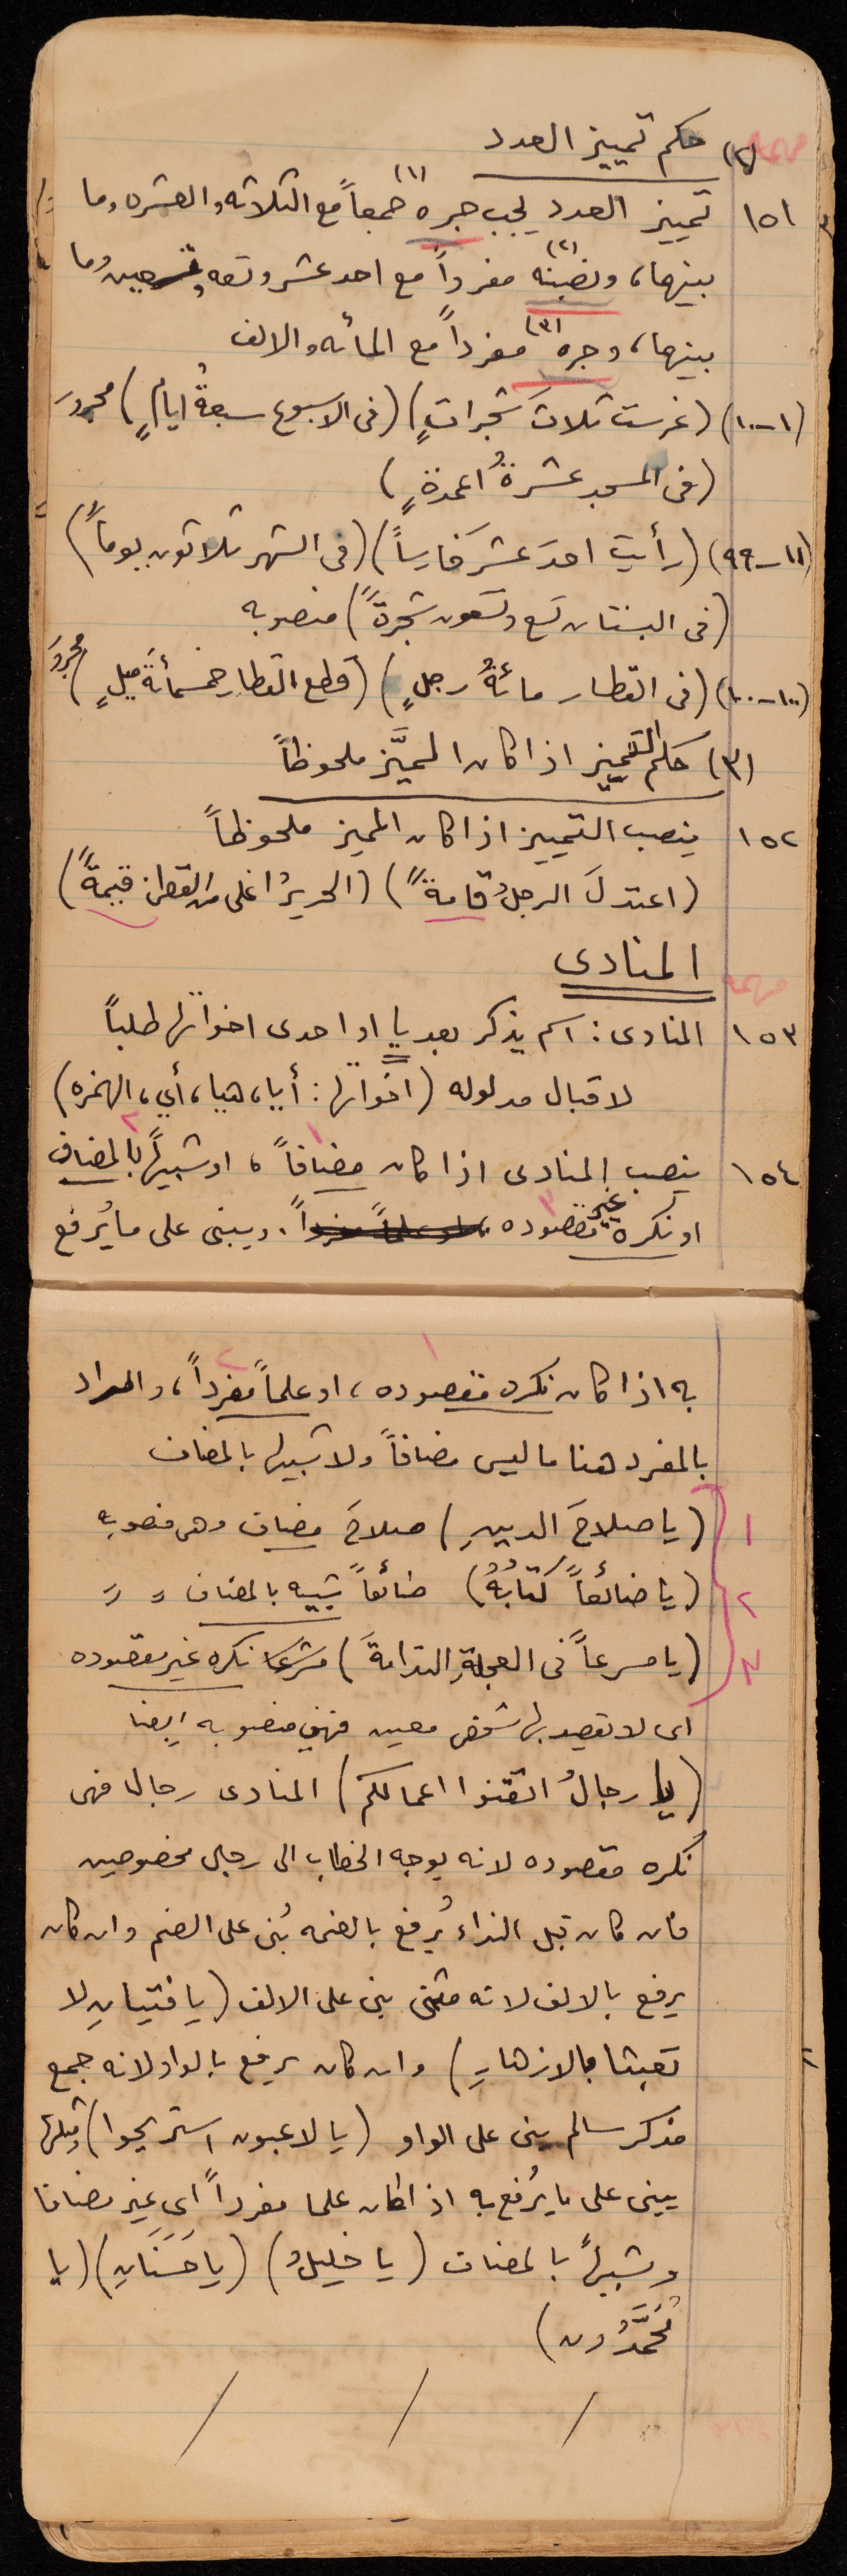 مهمة (٢) حكم تمييز العدد
١٥١ تمييز العدد يجب جره (١) جمعاً مع الثلاثه والعشره وما
بينهما، ونصبه (٢) مفرداً مع احد عشر وتسعه وتسعين وما
بينهما، وجره (٣) مفرداً مع المأئه والالف
(١-١٠) (غرست ثلاثَ شجراتٍ) (فى الاسبوع سبعةُ ايامٍ) مجرور
(فى المسجد عشرةُ اعمدةٍ)
(١١-٩٩) (رأيت احدَ عشَر فارساً) (فى الشهر ثلاثون يوماً)
(فى البستان تسع وتسعون شجرةً) منصوبه
(١٠٠-١٠٠٠) (فى القطار مائةُ رجلٍ) (قطع القطار خمسمأئةَ ميلٍ) مجرور
(٣) حكم التمييز اذا كان المميَّز ملحوظاً
١٥٢ ينصب التمييز اذا كان المميز ملحوظاً
(اعتدلَ الرجلُ قامةً) (الحريرُ اغلى من القطن قيمةً)
مهمه المنادى
١٥٣ المنادى: اسم يذكر بعد يا او احدى اخواتها طلباً
لاقبال مدلوله (اخواتها: أيا، هيا، أي، الهمزه)
١٥٤ ينصب المنادى اذا كان مضافاً ١، او شبيهاً بالمضاف ٢
او نكرة غير مقصوده ٣ او علماً مفرداً. ويبنى على ما يُرفع
به اذا كان نكره مقصوده ١، او علماً مفرداً ٢، والمراد
بالمفرد هنا ما ليس مضافاً ولا شبيها بالمضاف
١ (يا صلاحَ الدينِ) صلاحَ مضاف وهى منصوبه
٢ (يا ضائعاً كتابُهُ) ضائعاً شبيه بالمضاف 〃 〃
٣ (يا مسرعاً فى العجلةِ الندامةَ) مسرعا نكره غير مقصوده
اى لا تقصد بها شخص معين فهى منصوبه ايضا
(يا رجالُ اتقنوا اعمالكم) المنادى رجالا فهى
نكره مقصوده لانه يوجه الخطاب الى رجال مخصوصين
فان كان قبل النداء يُرفع بالضمه بُنى على الضم وان كان
يرفع بالالف لانه مثنى بنى على الالف (يا فتيانِ لا
تعبثا بالازهارِ) وان كان يرفع بالواو لانه جمع
مذكر سالم بنى على الواو (يا لاعبون استريحوا) ومثلها
يبنى على ما يُرفع به اذا كان علما مفرداً اى غير مضافا
وشبيهاً بالمضاف (يا خليلُ) (يا حَسَنَانِ) (يا
مُحَمَّدُون)